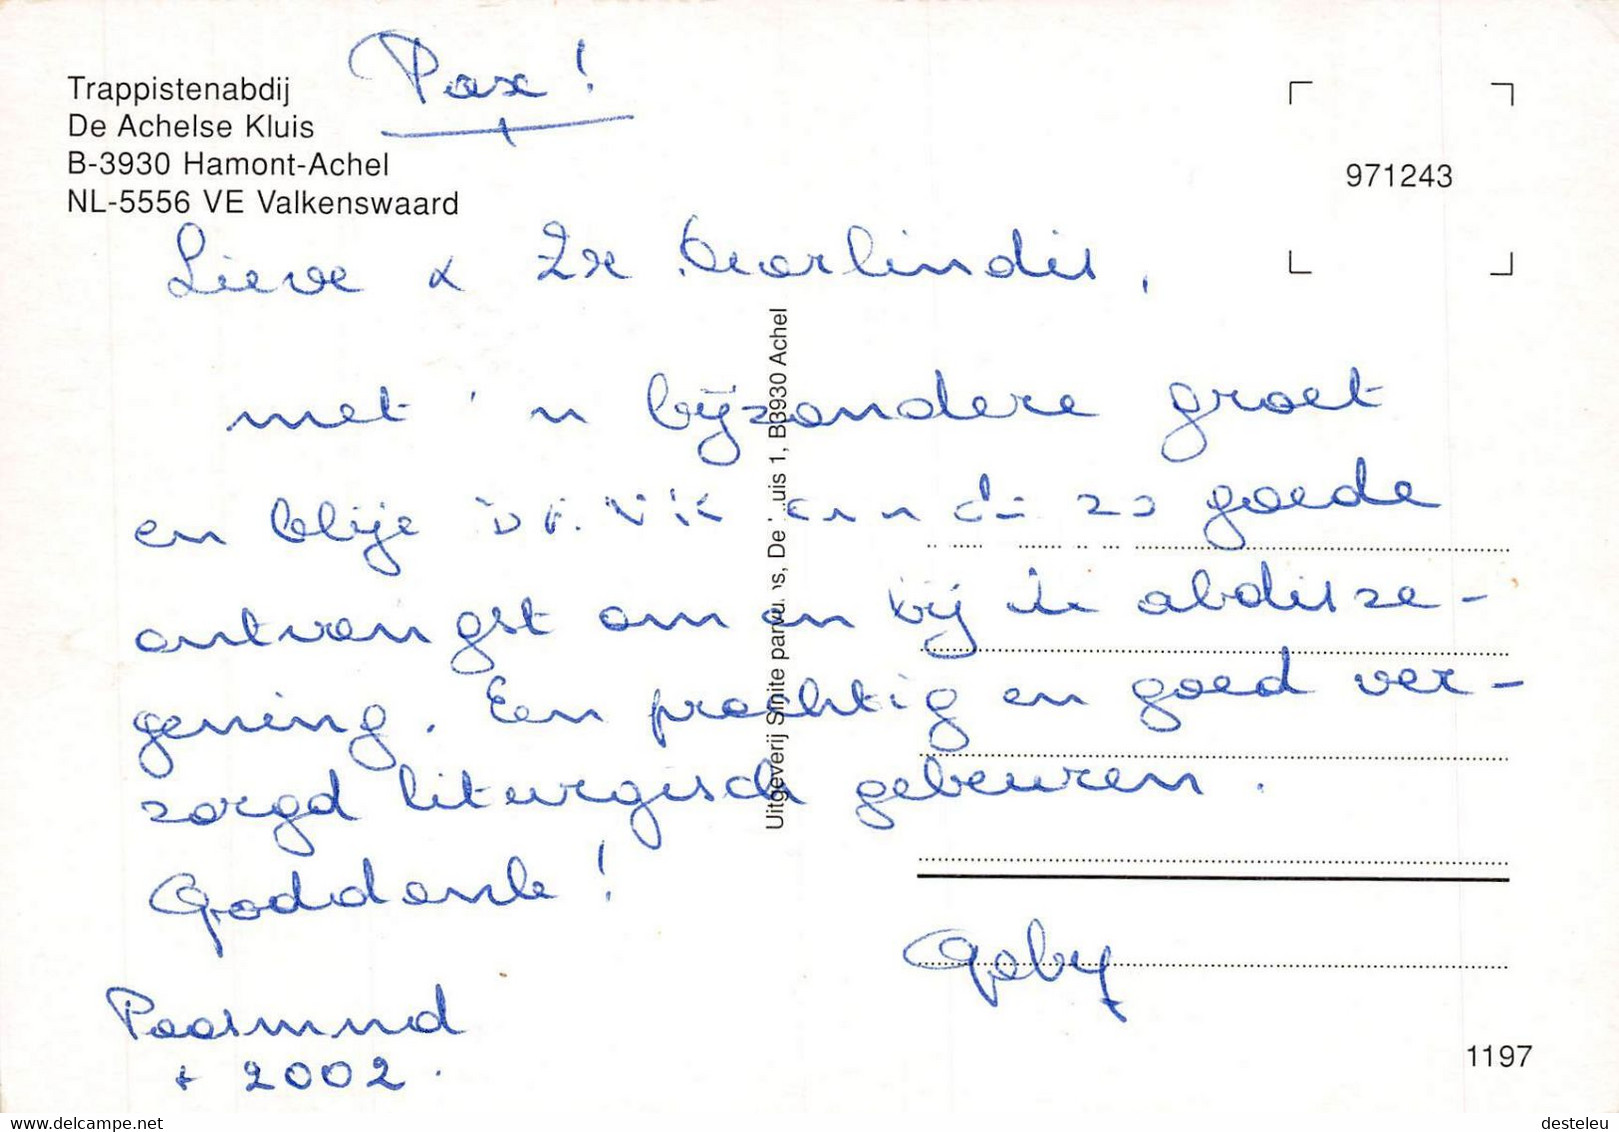 Trappistenabdij
De Achelse Kluis
B-3930 Hamont-Achel
NL-5556 VE Valkenswaard
Pax!
971243
Lieve
met 'n bijzondere groet
en blije zo goede
ontvangst om en bij de abdisze-
gening. Een prachtig en goed ver-
zorgd liturgisch gebeuren.
Goddank!
Gaby
Paasmnd
+ 2002.
Uitgeverij Smite parvulos, De Kluis 1, B3930 Achel
1197
delcampe.net
desteleu